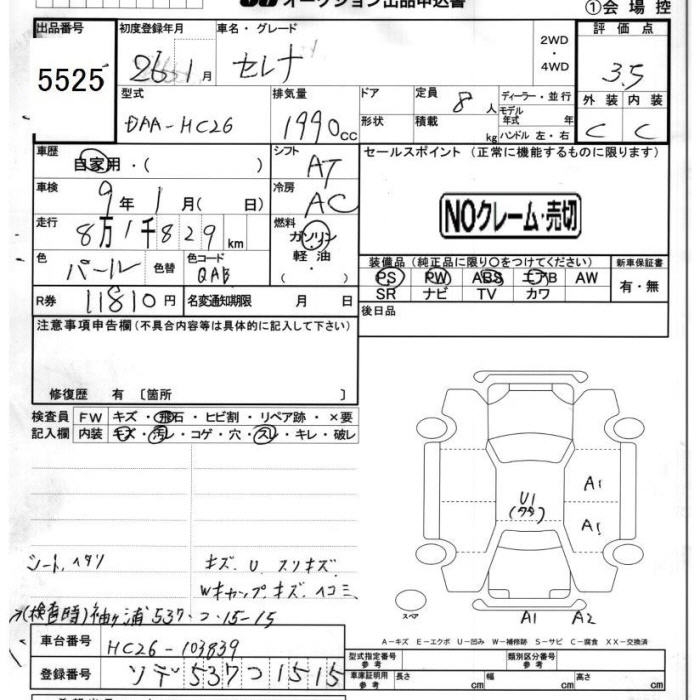 オークション出品申込書 ①会場控
出品番号 初度登録年月 車名・グレード 2WD・4WD 評価点
5525 26 1月 セレナ 3.5
型式 排気量 ドア 定員 8人 ディーラー・並行 外装 内装
DAA-HC26 1990cc 形状 積載 kg モデル年式 年 ハンドル 左・右 C C
車歴 自家用・( ) シフト AT セールスポイント (正常に機能するものに限ります)
車検 9年1月( 日) 冷房 AC NOクレーム・売切
走行 8万1千829km 燃料 ガソリン・軽油・( )
色 パール 色替 色コード QAB 装備品 (純正品に限り○をつけてください) 新車保証書
PS PW ABS エアB AW 有・無
SR ナビ TV カワ
R券 11810円 名変通知期限 月 日 後日品
注意事項申告欄(不具合内容等は具体的に記入して下さい)
修復歴 有 〔箇所 〕
検査員 FW キズ・飛石・ヒビ割・リペア跡・×要
記入欄 内装 キズ・汚レ・コゲ・穴・スレ・キレ・破レ
A1
U1
A1
シート、ヘタリ キズ、U、スリキズ、
Wキャップキズ、ヘコミ、
スペア
(検査時)袖ヶ浦537.つ.15-15 A1 A2
A-キズ E-エクボ U-凹み W-補修跡 S-サビ C-腐食 XX-交換済
車台番号 HC26-103839 型式指定番号 参考 類別区分番号 参考
登録番号 ソデ537つ1515 車庫証明用 参考 長さ cm 幅 cm 高さ cm